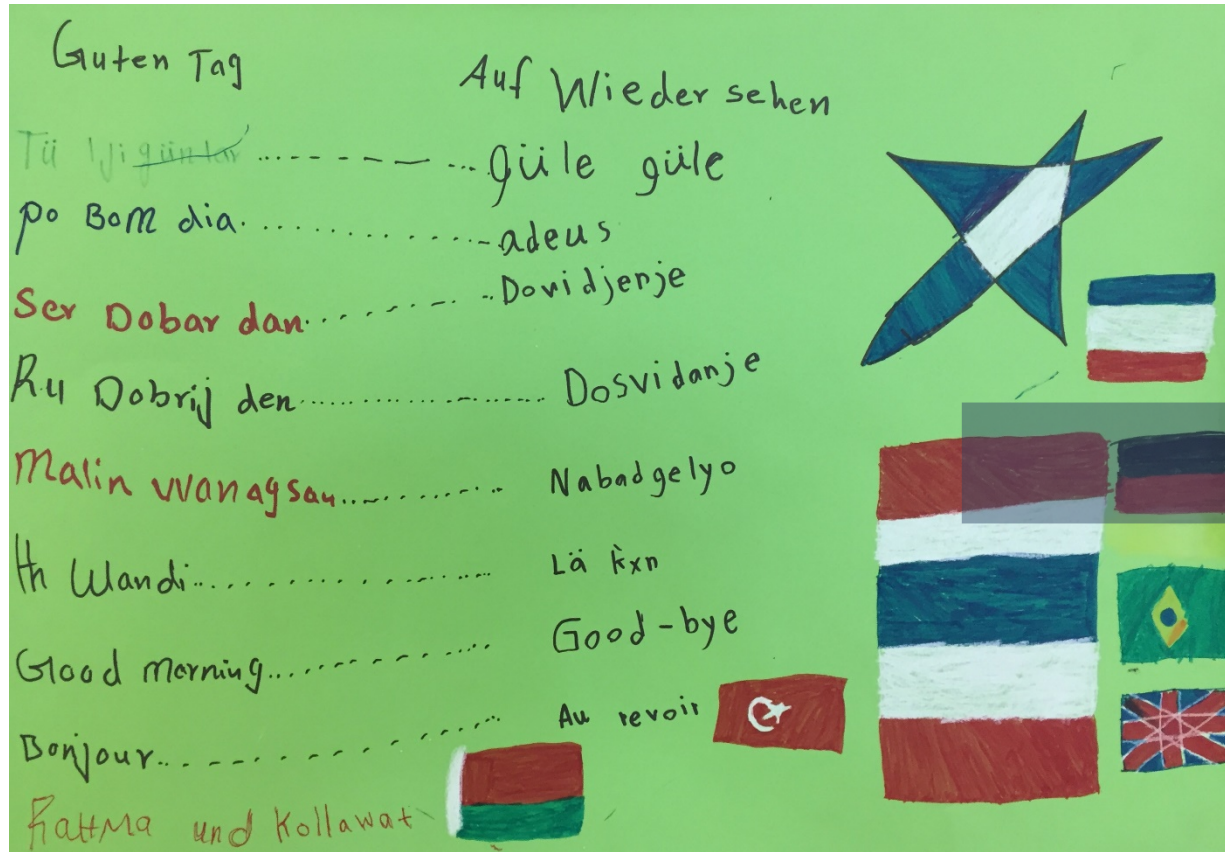 Guten Tag Auf Wiedersehen
Tü Iyi günlar güle güle
po Bom dia adeus
Ser Dobar dan Dovidjenje
Ru Dobrij den Dosvidanje
Malin wanagsan Nabadgelyo
th Wandi Lä kxn
Good morning Good-bye
Bonjour Au revoir
RaHMa und Kollawat